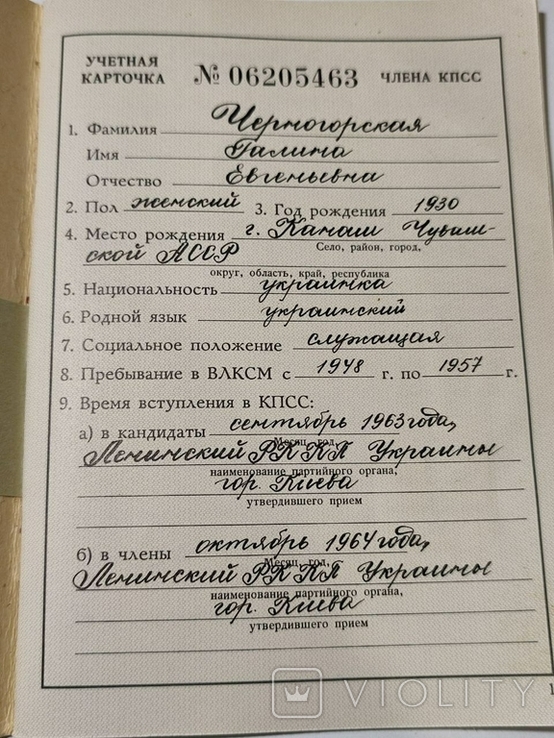 УЧЕТНАЯ
КАРТОЧКА № 06205463 ЧЛЕНА КПСС
1. Фамилия Черногорская
Имя Галина
Отчество Евгеньевна
2. Пол женский 3. Год рождения 1930
4. Место рождения г. Канаш Чуваш-
Село, район, город,
ской АССР
округ, область, край, республика
5. Национальность украинка
6. Родной язык украинский
7. Социальное положение служащая
8. Пребывание в ВЛКСМ с 1948 г. по 1957 г.
9. Время вступления в КПСС:
а) в кандидаты сентябрь 1963 года,
Месяц, год,
Ленинский РК КП Украины
наименование партийного органа,
гор. Киева
утвердившего прием
б) в члены октябрь 1964 года,
Месяц, год,
Ленинский РК КП Украины
наименование партийного органа,
гор. Киева
утвердившего прием
1
VIOLITY